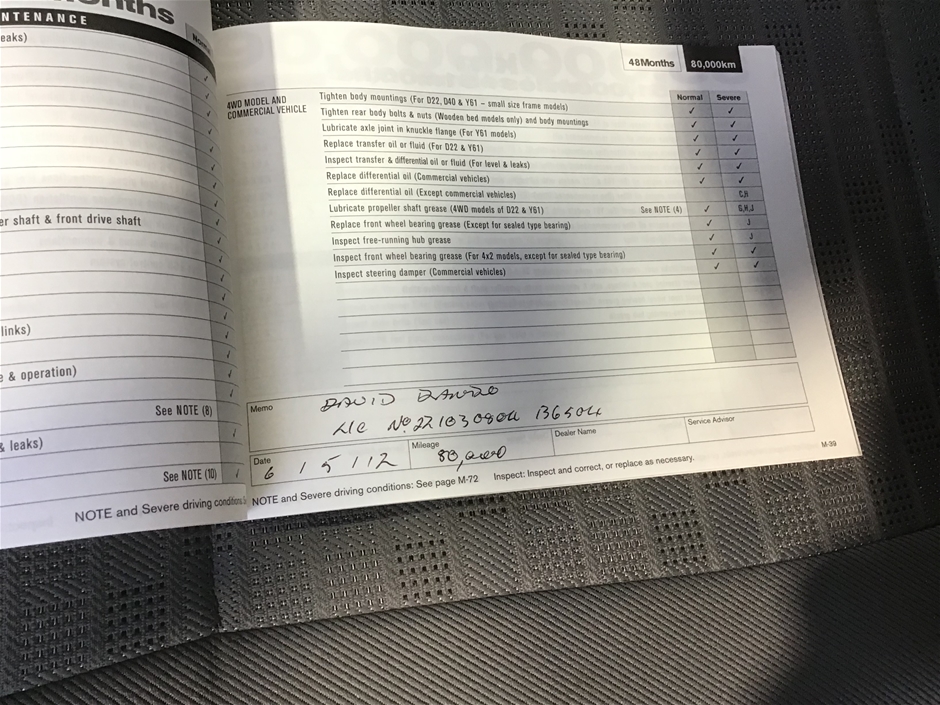 onths
NTENANCE
Norm
eaks)
er shaft & front drive shaft
links)
e & operation)
See NOTE (8)
& leaks)
See NOTE (10)
NOTE and Severe driving conditions:
48Months 80,000km
4WD MODEL AND
COMMERCIAL VEHICLE
Normal Severe
Tighten body mountings (For D22, D40 & Y61 – small size frame models) ✓ ✓
Tighten rear body bolts & nuts (Wooden bed models only) and body mountings ✓ ✓
Lubricate axle joint in knuckle flange (For Y61 models) ✓ ✓
Replace transfer oil or fluid (For D22 & Y61) ✓ ✓
Inspect transfer & differential oil or fluid (For level & leaks) ✓ ✓
Replace differential oil (Commercial vehicles) ✓ ✓
Replace differential oil (Except commercial vehicles) C,H
Lubricate propeller shaft grease (4WD models of D22 & Y61) See NOTE (4) ✓ G,H,J
Replace front wheel bearing grease (Except for sealed type bearing) ✓ J
Inspect free-running hub grease ✓ J
Inspect front wheel bearing grease (For 4x2 models, except for sealed type bearing) ✓ ✓
Inspect steering damper (Commercial vehicles) ✓ ✓
Memo
DAVID
Date 6 1 5 1 12 Mileage 80,000 Dealer Name Service Advisor
NOTE and Severe driving conditions: See page M-72 Inspect: Inspect and correct, or replace as necessary.
M-39